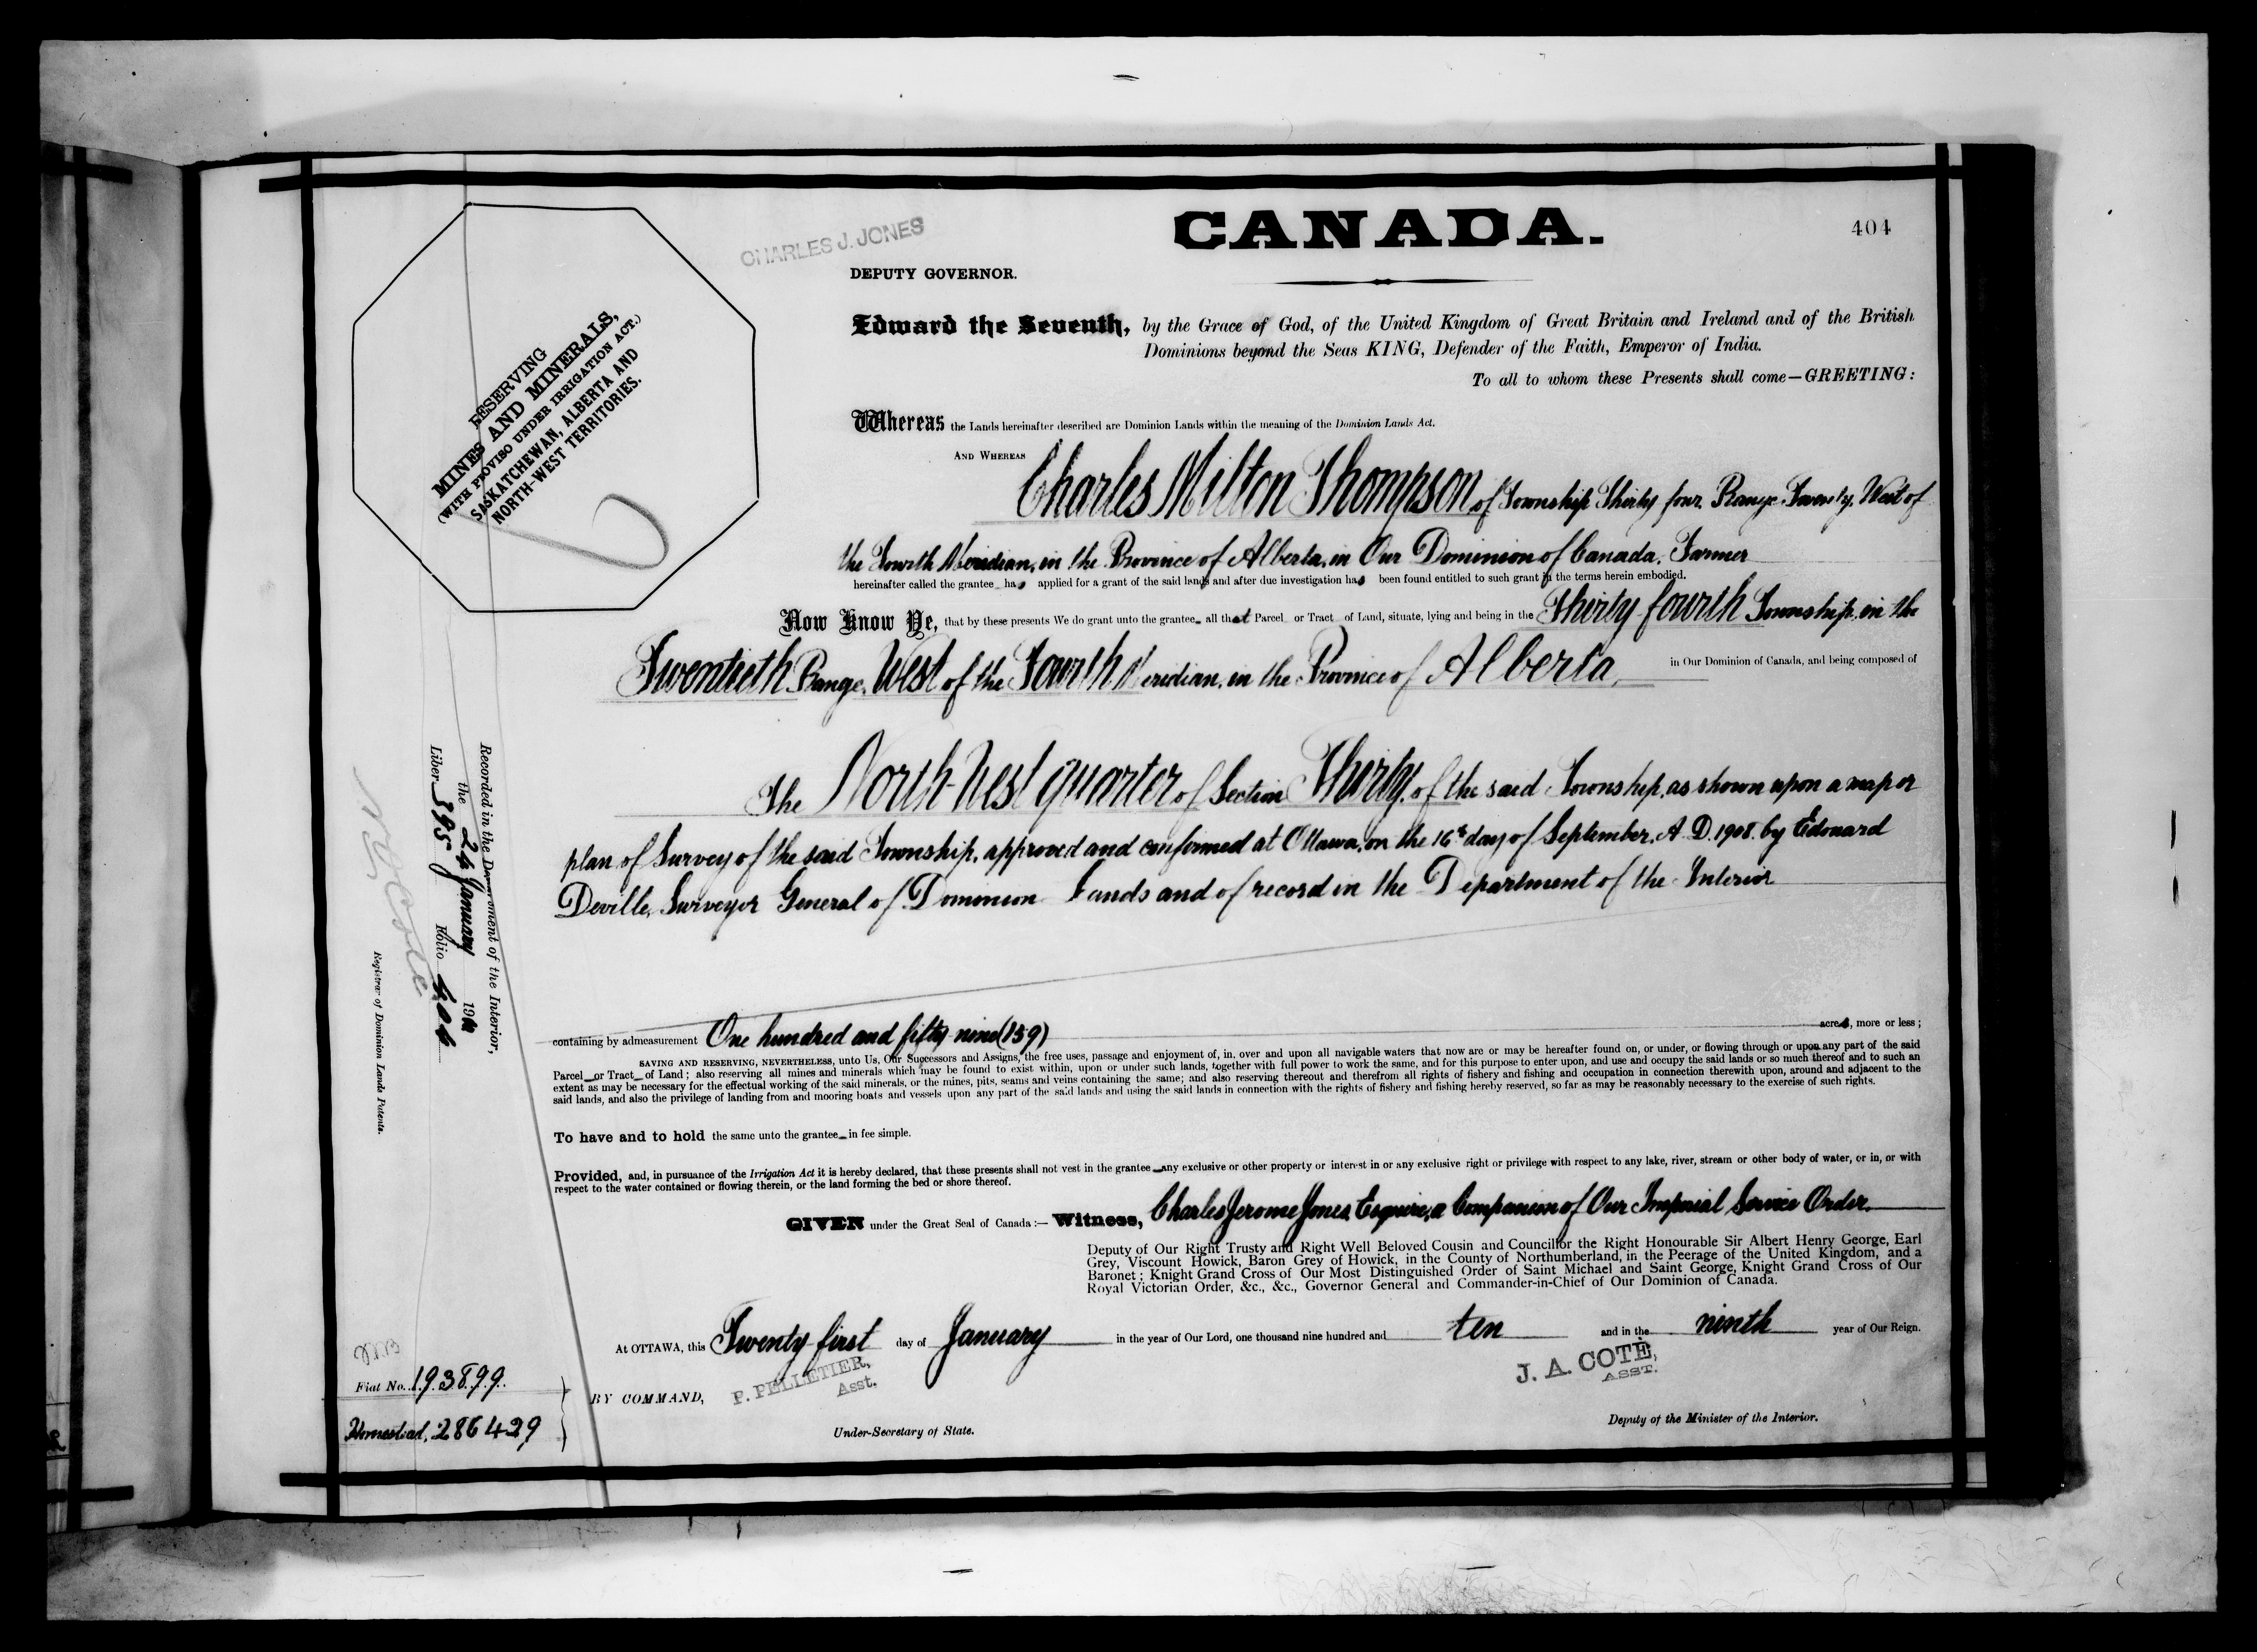 CANADA.
404
CHARLES J. JONES
DEPUTY GOVERNOR.
RESERVING
MINES AND MINERALS,
(WITH PROVISO UNDER IRRIGATION ACT.)
SASKATCHEWAN, ALBERTA AND
NORTH-WEST TERRITORIES.
Edward the Seventh, by the Grace of God, of the United Kingdom of Great Britain and Ireland and of the British
Dominions beyond the Seas KING, Defender of the Faith, Emperor of India.
To all to whom these Presents shall come—GREETING:
Whereas the Lands hereinafter described are Dominion Lands within the meaning of the Dominion Lands Act.
AND WHEREAS Charles Milton Thompson, of Township Thirty four, Range Twenty, West of
the Fourth Meridian, in the Province of Alberta, in Our Dominion of Canada, Farmer
hereinafter called the grantee has applied for a grant of the said lands and after due investigation has been found entitled to such grant in the terms herein embodied.
Now Know Ye, that by these presents We do grant unto the grantee all that Parcel or Tract of Land, situate, lying and being in the Thirty fourth Township, in the
Twentieth Range, West of the Fourth Meridian, in the Province of Alberta, in Our Dominion of Canada, and being composed of
The North-West quarter of Section Thirty, of the said Township, as shown upon a map or
plan of Survey of the said Township, approved and confirmed at Ottawa, on the 16th day of September, A.D. 1908. by Edouard
Deville, Surveyor General of Dominion Lands and of record in the Department of the Interior
containing by admeasurement One hundred and fifty nine (159) acres, more or less;
SAVING AND RESERVING, NEVERTHELESS, unto Us, Our Successors and Assigns, the free uses, passage and enjoyment of, in, over and upon all navigable waters that now are or may be hereafter found on, or under, or flowing through or upon any part of the said
Parcel or Tract of Land; also reserving all mines and minerals which may be found to exist within, upon or under such lands, together with full power to work the same, and for this purpose to enter upon, and use and occupy the said lands or so much thereof and to such an
extent as may be necessary for the effectual working of the said minerals, or the mines, pits, seams and veins containing the same; and also reserving thereout and therefrom all rights of fishery and fishing and occupation in connection therewith upon, around and adjacent to the
said lands, and also the privilege of landing from and mooring boats and vessels upon any part of the said lands and using the said lands in connection with the rights of fishery and fishing hereby reserved, so far as may be reasonably necessary to the exercise of such rights.
To have and to hold the same unto the grantee in fee simple.
Provided, and, in pursuance of the Irrigation Act it is hereby declared, that these presents shall not vest in the grantee any exclusive or other property or interest in or any exclusive right or privilege with respect to any lake, river, stream or other body of water, or in, or with
respect to the water contained or flowing therein, or the land forming the bed or shore thereof.
GIVEN under the Great Seal of Canada:— Witness, Charles Jerome Jones, Esquire, a Companion of Our Imperial Service Order.
Deputy of Our Right Trusty and Right Well Beloved Cousin and Councillor the Right Honourable Sir Albert Henry George, Earl
Grey, Viscount Howick, Baron Grey of Howick, in the County of Northumberland, in the Peerage of the United Kingdom, and a
Baronet; Knight Grand Cross of Our Most Distinguished Order of Saint Michael and Saint George, Knight Grand Cross of Our
Royal Victorian Order, &c., &c., Governor General and Commander-in-Chief of Our Dominion of Canada.
At OTTAWA, this Twenty first day of January in the year of Our Lord, one thousand nine hundred and ten and in the ninth year of Our Reign.
BY COMMAND,
P. PELLETIER,
Asst.
Under-Secretary of State.
J. A. COTÉ,
ASST.
Deputy of the Minister of the Interior.
Recorded in the Department of the Interior,
the 24 January 19
Liber 395 Folio 404
N O Coté
Registrar of Dominion Lands Patents.
Fiat No. 193899.
Homestead, 286429